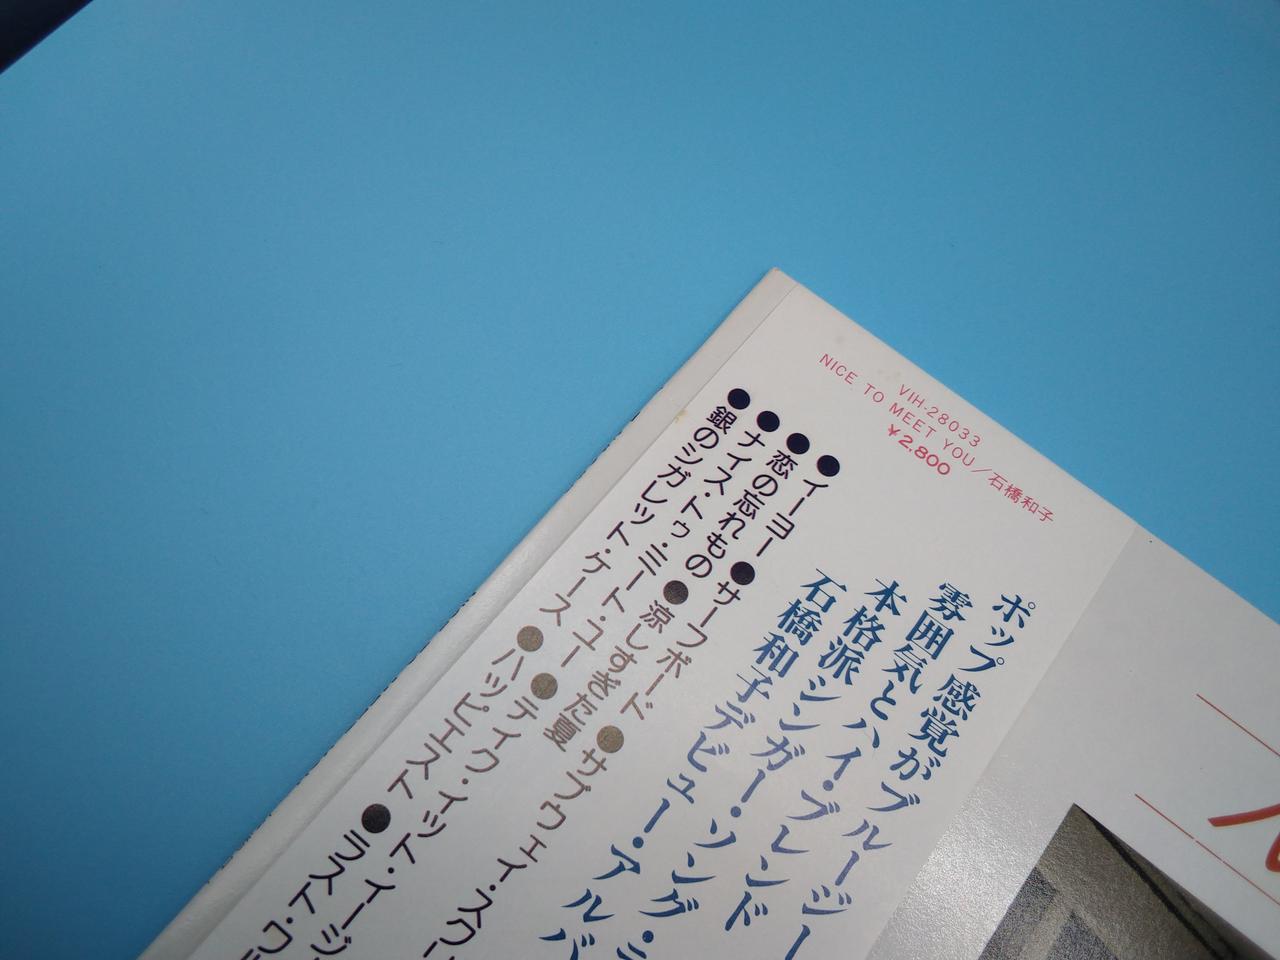 VIH-28033
NICE TO MEET YOU／石橋和子
¥2,800
ポップ感覚がブルージー
雰囲気とハイ・ブレンド
本格派シンガー・ソング・ラ
石橋和子デビュー・アルバ
●イーヨー●サーフボード●サブウェイ・スク
●恋の忘れもの●涼しすぎた夏
●ナイス・トゥ・ミート・ユー●テイク・イット・イージ
●銀のシガレット・ケース●ハッピエスト●ラスト・ワ